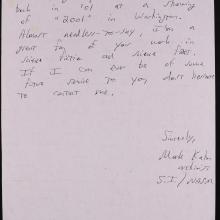 back in '01 at a showing
of "2001" in Washington.
Almost needless-to-say, I'm a
great fan of your work in
science fiction and science fact.
If I can ever be of some
future service to you, don't hesitate
to contact me.
Sincerely,
Mark Kahn
archivist
S.I./NASM